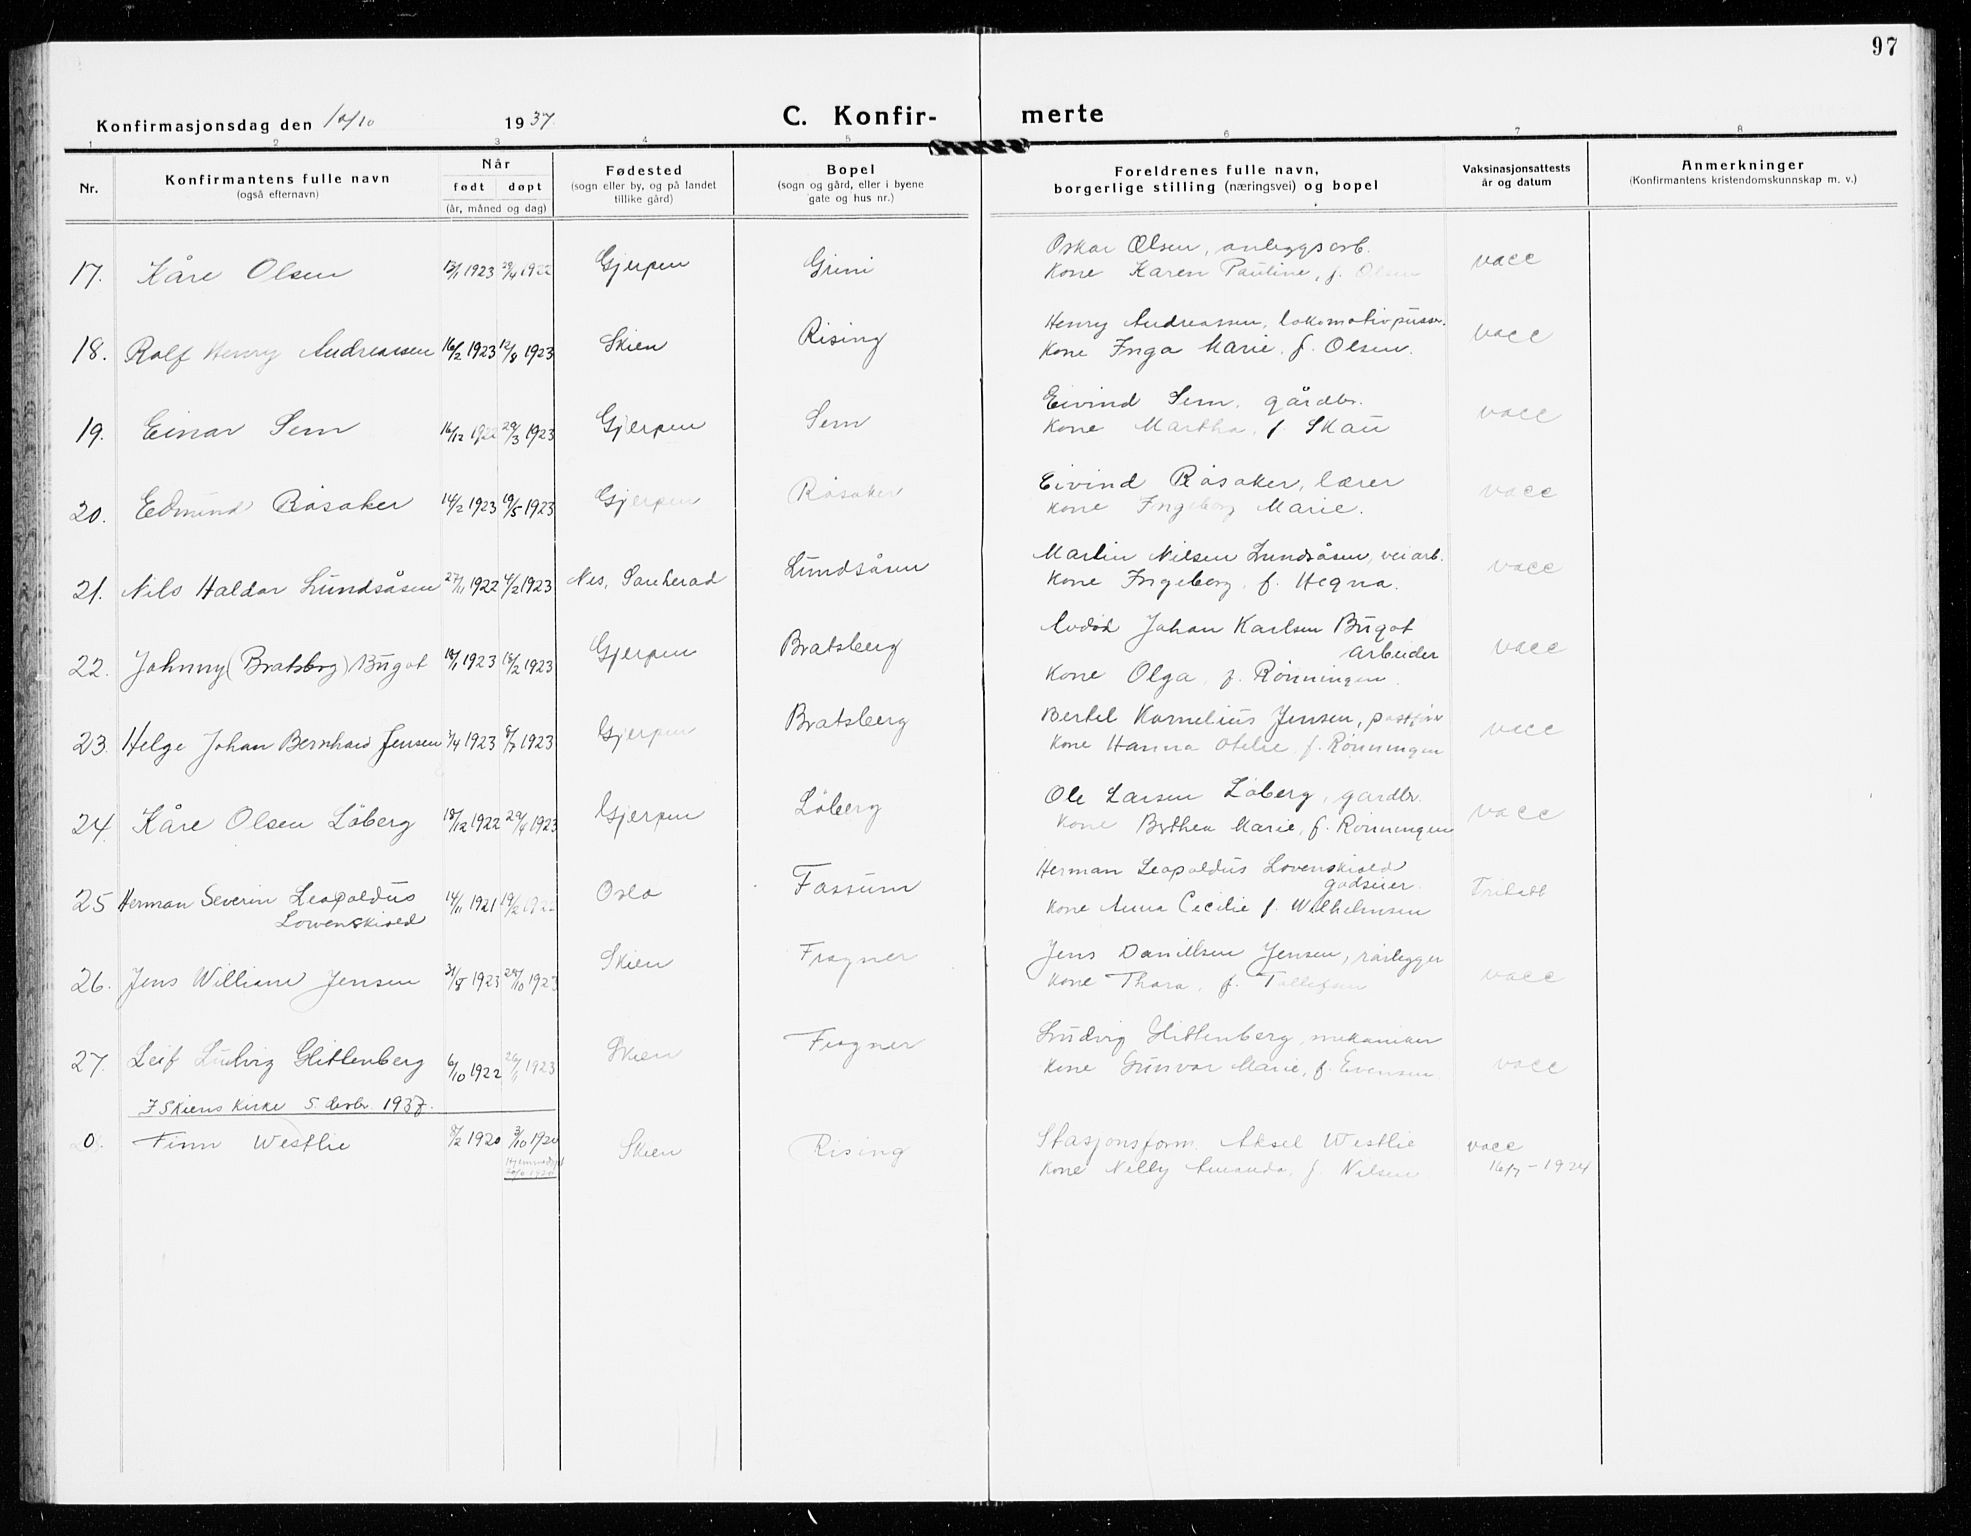 97
Konfirmasjonsdag den 10/10 1937. C. Konfir- merte
1 2 3 4 5 6 7 8
Nr. Konfirmantens fulle navn (også efternavn) Når født døpt (år, måned og dag) Fødested (sogn eller by, og på landet tillike gård) Bopel (sogn og gård, eller i byene gate og hus nr.) Foreldrenes fulle navn, borgerlige stilling (næringsvei) og bopel Vaksinasjonsattests år og datum Anmerkninger (Konfirmantens kristendomskunnskap m. v.)
17. Kåre Olsen 1923 29/4 1922 Gjerpen Grini Oskar Olsen, anleggsarb. vacc
Kone Karen Pauline, f. Olsen
18. Rolf Henry Andreassen 16/2 1923 12/8 1923 Skien Rising Henry Andreassen, lokomotivpusser. vacc
Kone Inga Marie f. Olsen.
19. Einar Sem 16/12 1922 29/3 1923 Gjerpen Sem Eivind Sem, gårdbr. vacc
Kone Martha, f. Skau
20. Edmund Råsaker 14/2 1923 19/5 1923 Gjerpen Råsaker Eivind Råsaker, lærer vacc
Kone Ingeborg Marie.
21. Nils Haldor Lundsåsen 27/11 1922 4/2 1923 Nes, Sauherad Lundsåsen Martin Nilsen Lundsåsen, veiarb. vacc
Kone Ingeborg, f. Hegna.
22. Johnny (Bratsberg) Bugot 18/1 1923 18/2 1923 Gjerpen Bratsberg Avdød Johan Karlsen Bugot vacc
Arbeider
Kone Olga, f. Rønningen.
23. Helge Johan Bernhard Jensen 3/4 1923 8/7 1923 Gjerpen Bratsberg Bertel Kornelius Jensen, vacc
Kone Hanna Otelie f. Rønningen
24. Kåre Olsen Löberg 18/12 1922 29/4 1923 Gjerpen Löberg Ole Larsen Löberg, gardbr. vacc
Kone Berthea Marie, f. Rønningen
25 Herman Severin Leopoldus Løwenskiold 14/11 1921 19/2 1922 Oslo Fossum Herman Leopoldus Løvenskiold godseier. Fritatt
Kone Anna Cecilie f. Wilhelmsen
26. Jens William Jensen 31/8 1923 28/10 1923 Skien Frogner Jens Daniilsen Jensen, rørlegger vacc
Kone Thora, f. Tollefsen
27. Leif Ludvig Glittenberg 6/10 1922 26/11 1923 Skien Frogner Ludvig Glittenberg, mekaniker vacc
Kone Gunvor Marie, f. Evensen
I Skiens kirke 5. desbr. 1937.
Finn Westlie 8/2 1920 3/10 1920 Skien Rising Stasjonsform. Aksel Westlie vacc
Hjemmedøpt
Kone Nelly Amanda, f. Nilsen 16/7 - 1924